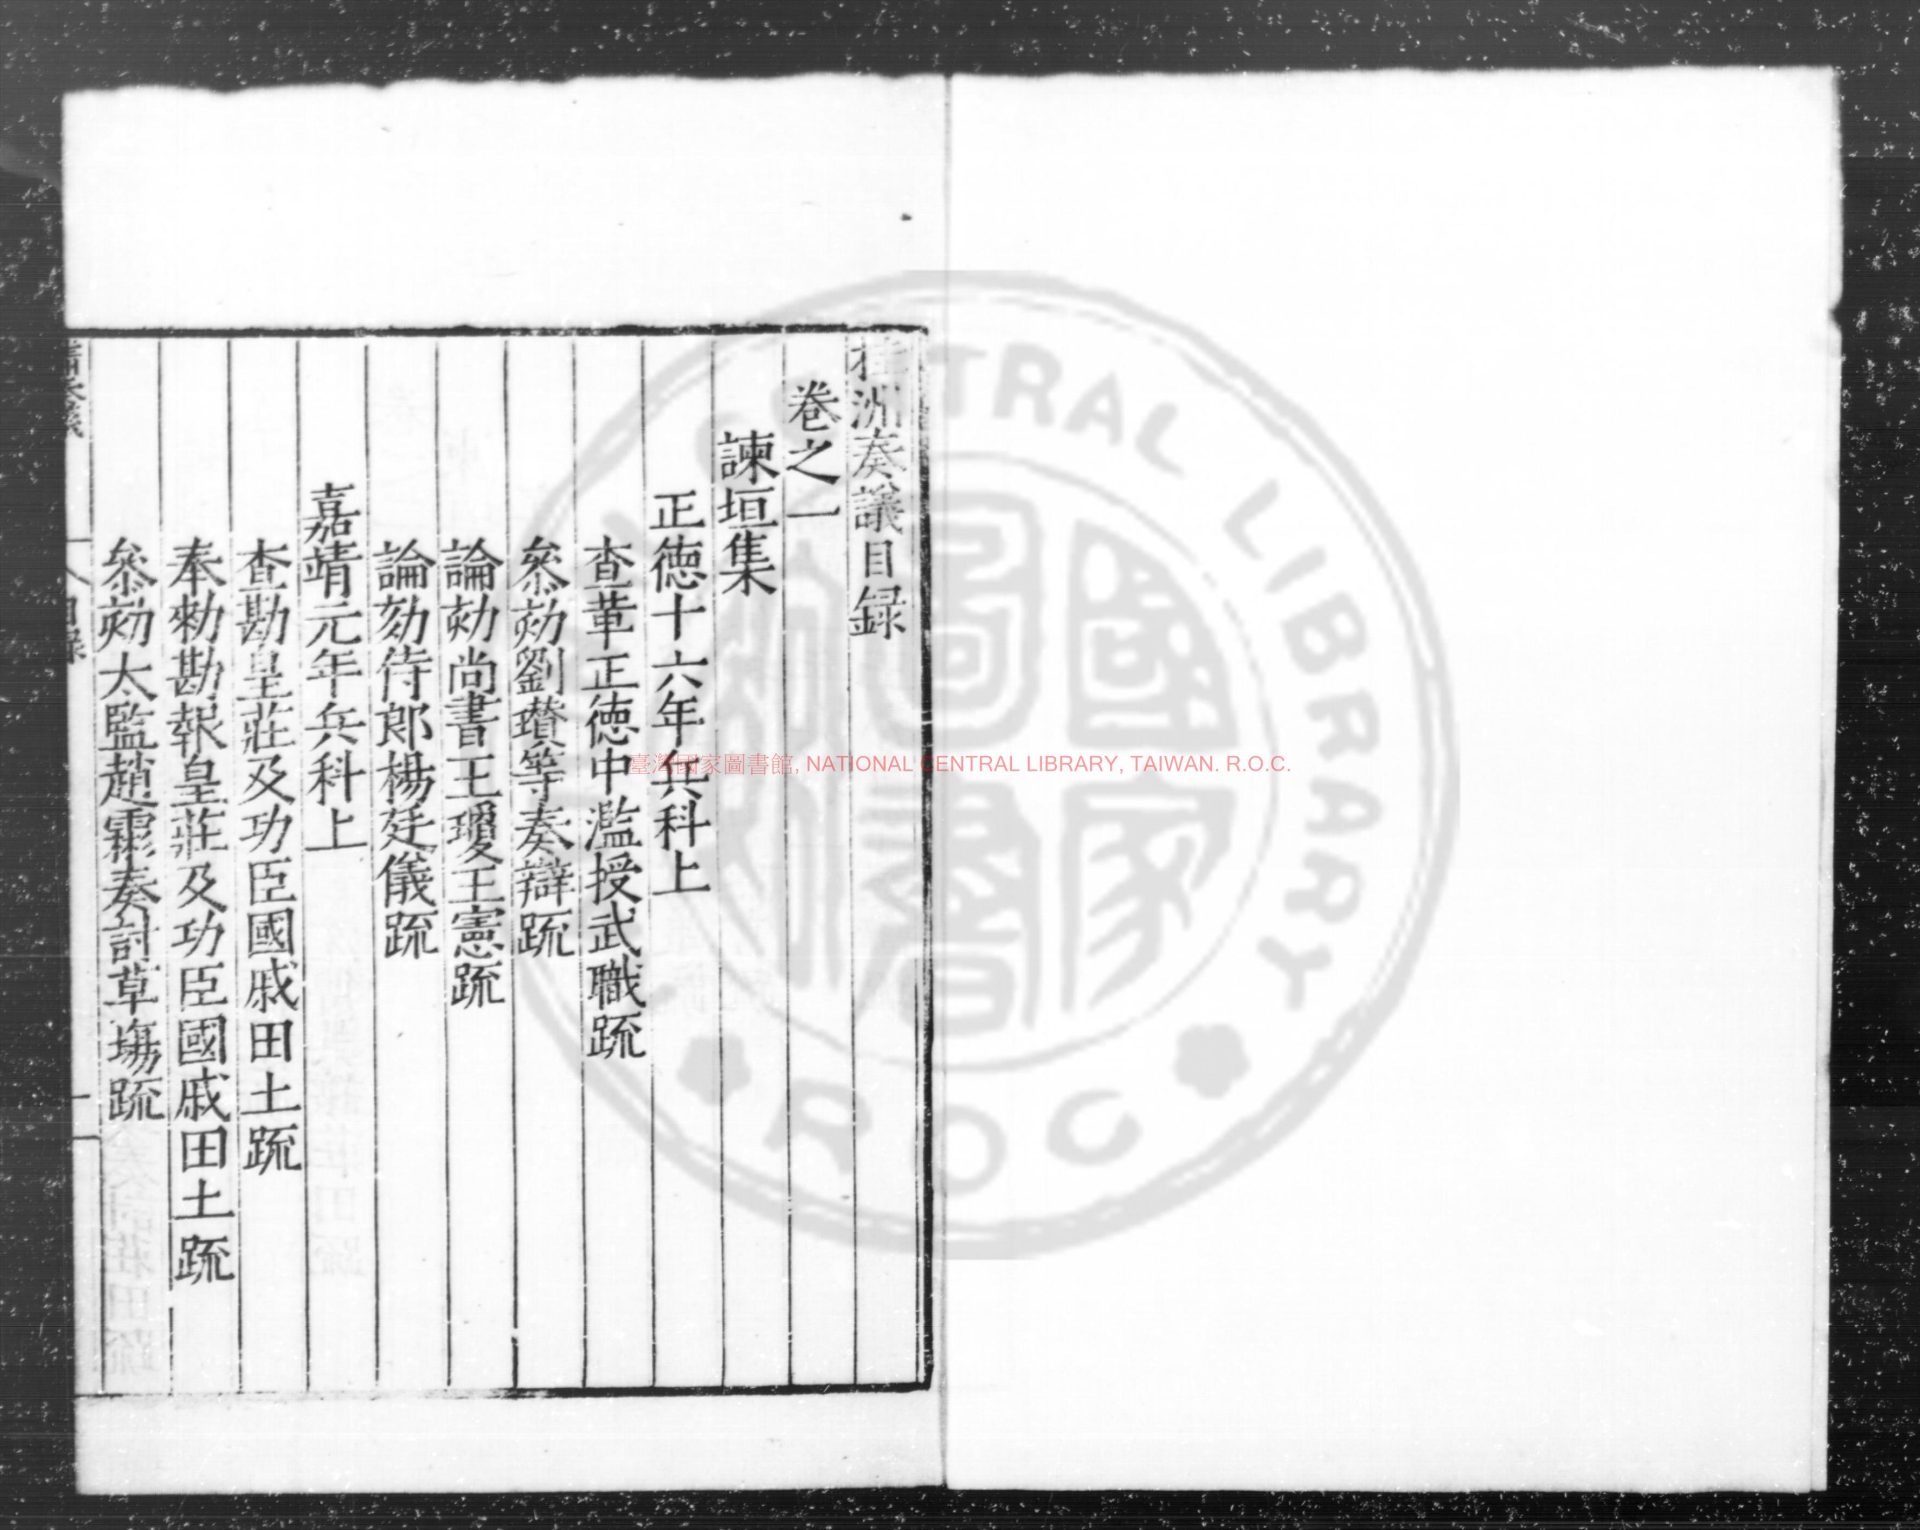 桂洲奏議目録
卷之一
諫垣集
正徳十六年兵科上
查革正徳中濫授武職疏
叅劾劉瓚等奏辯疏
論劾尚書王瓊王憲疏
論劾侍郎楊廷儀疏
嘉靖元年兵科上
查勘皇莊及功臣國戚田土疏
奉勑勘報皇莊及功臣國戚田土疏
叅劾太監趙霦奏討草塲疏
目録
臺灣國家圖書館, NATIONAL CENTRAL LIBRARY, TAIWAN. R.O.C.
CENTRAL LIBRARY
R O C
國家圖書館